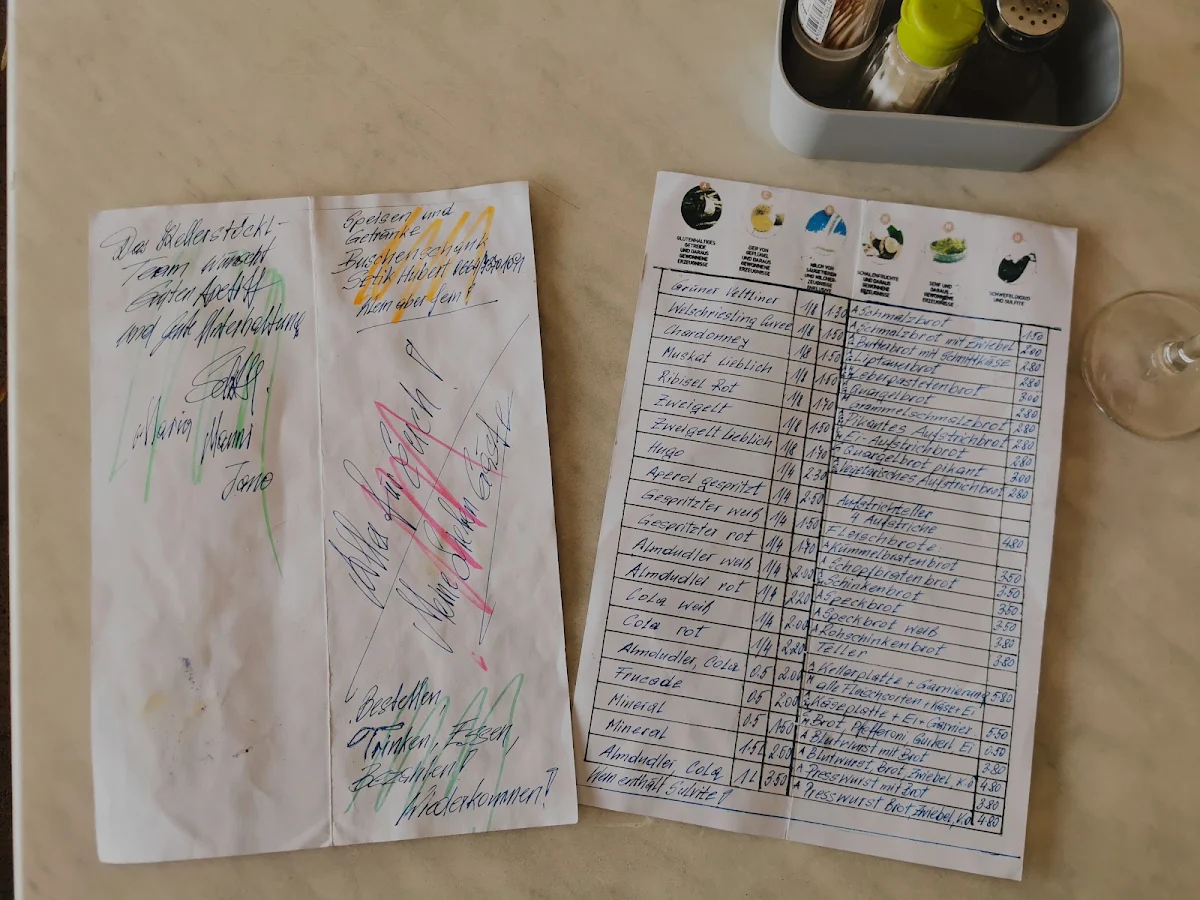 Das Kellerstöckl-
Team wünscht
Guten Apetitt
und gute Unterhaltung
Maria Manni
Jano
Speisen und
Getränke
Buschenschank
Hubert
Klein aber fein!
Hallo
Euch!
Meine lieben Gäste
Bestellen,
Trinken, Essen,
Bezahlen!
Wiederkommen!
GLUTENHALTIGES
GETREIDE
UND DARAUS
GEWONNENE
ERZEUGNISSE
EIER VON
GEFLÜGEL
UND DARAUS
GEWONNENE
ERZEUGNISSE
MILCH VON
SÄUGETIEREN
UND MILCH-
ERZEUGNISSE
SCHALENFRÜCHTE
UND DARAUS
GEWONNENE
ERZEUGNISSE
SENF UND
DARAUS
GEWONNENE
ERZEUGNISSE
SCHWEFELDIOXID
UND SULFITE
Grüner Veltliner 1/8 1·30
Welschriesling Cuvee 1/8 1·50
Chardonney 1/8 1·50
Muskat Lieblich 1/8
Ribisel Rot 1/8
Zweigelt 1/8 1·50
Zweigelt Lieblich 1/8
Hugo 1/4
Aperol gespritzt 1/4 2·50
Gespritzter weiß 1/4 1·50
Gespritzter rot 1/4 1·70
Almdudler weiß 1/4
Almdudler rot 1/4 2·20
Cola weiß 1/4 2·00
Cola rot 1/4 2·20
Almdudler, Cola 0.5 2·00
Frucade 0.5 2·00
Mineral 0.5 1·50
Mineral 1.5L 2·00
Almdudler Cola 1L 3·50
Wein enthält Sulvite!
A Schmalzbrot 1·50
A Schmalzbrot mit Zwiebel 2·00
Butterbrot mit Schnittkäse 2·80
Liptauerbrot 2·80
Leberpastetenbrot 3·00
Quargelbrot 2·80
Grammelschmalzbrot 2·80
Pikantes Aufstrichbrot 2·80
Ei-Aufstrichbrot 2·80
Quargelbrot pikant 3·00
Vegetarisches Aufstrichbrot 2·80
Aufstrichteller
4 Aufstriche 4·80
Fleischbrote:
A Kümmelbratenbrot 3·50
A Schopfbratenbrot 3·50
Schinkenbrot 3·50
A Speckbrot 3·50
A Speckbrot weiß 3·80
A Rohschinkenbrot 3·80
Teller
A Kellerplatte + Garnierung 5·80
alle Fleischsorten + Käse + Ei
Käseplatte + Ei + Garnier. 5·50
Brot, Pfefferoni, Gurkerl, Ei
A Blutwurst mit Brot 3·80
A Blutwurst, Brot, Zwiebel, K.ö 4·80
A Presswurst mit Brot 3·80
A Presswurst Brot, Zwiebel, K.ö 4·80